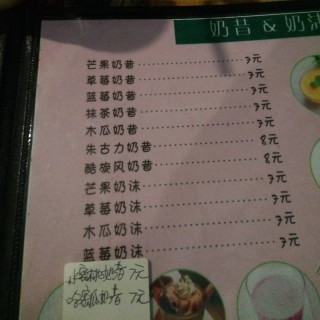 奶昔 & 奶沫
芒果奶昔…………7元
草莓奶昔…………7元
蓝莓奶昔…………7元
抹茶奶昔…………7元
木瓜奶昔…………7元
朱古力奶昔…………8元
酷旋风奶昔…………8元
芒果奶沫…………7元
草莓奶沫…………7元
木瓜奶沫…………7元
蓝莓奶沫…………7元
水蜜桃奶昔 7元
哈蜜瓜奶昔 7元